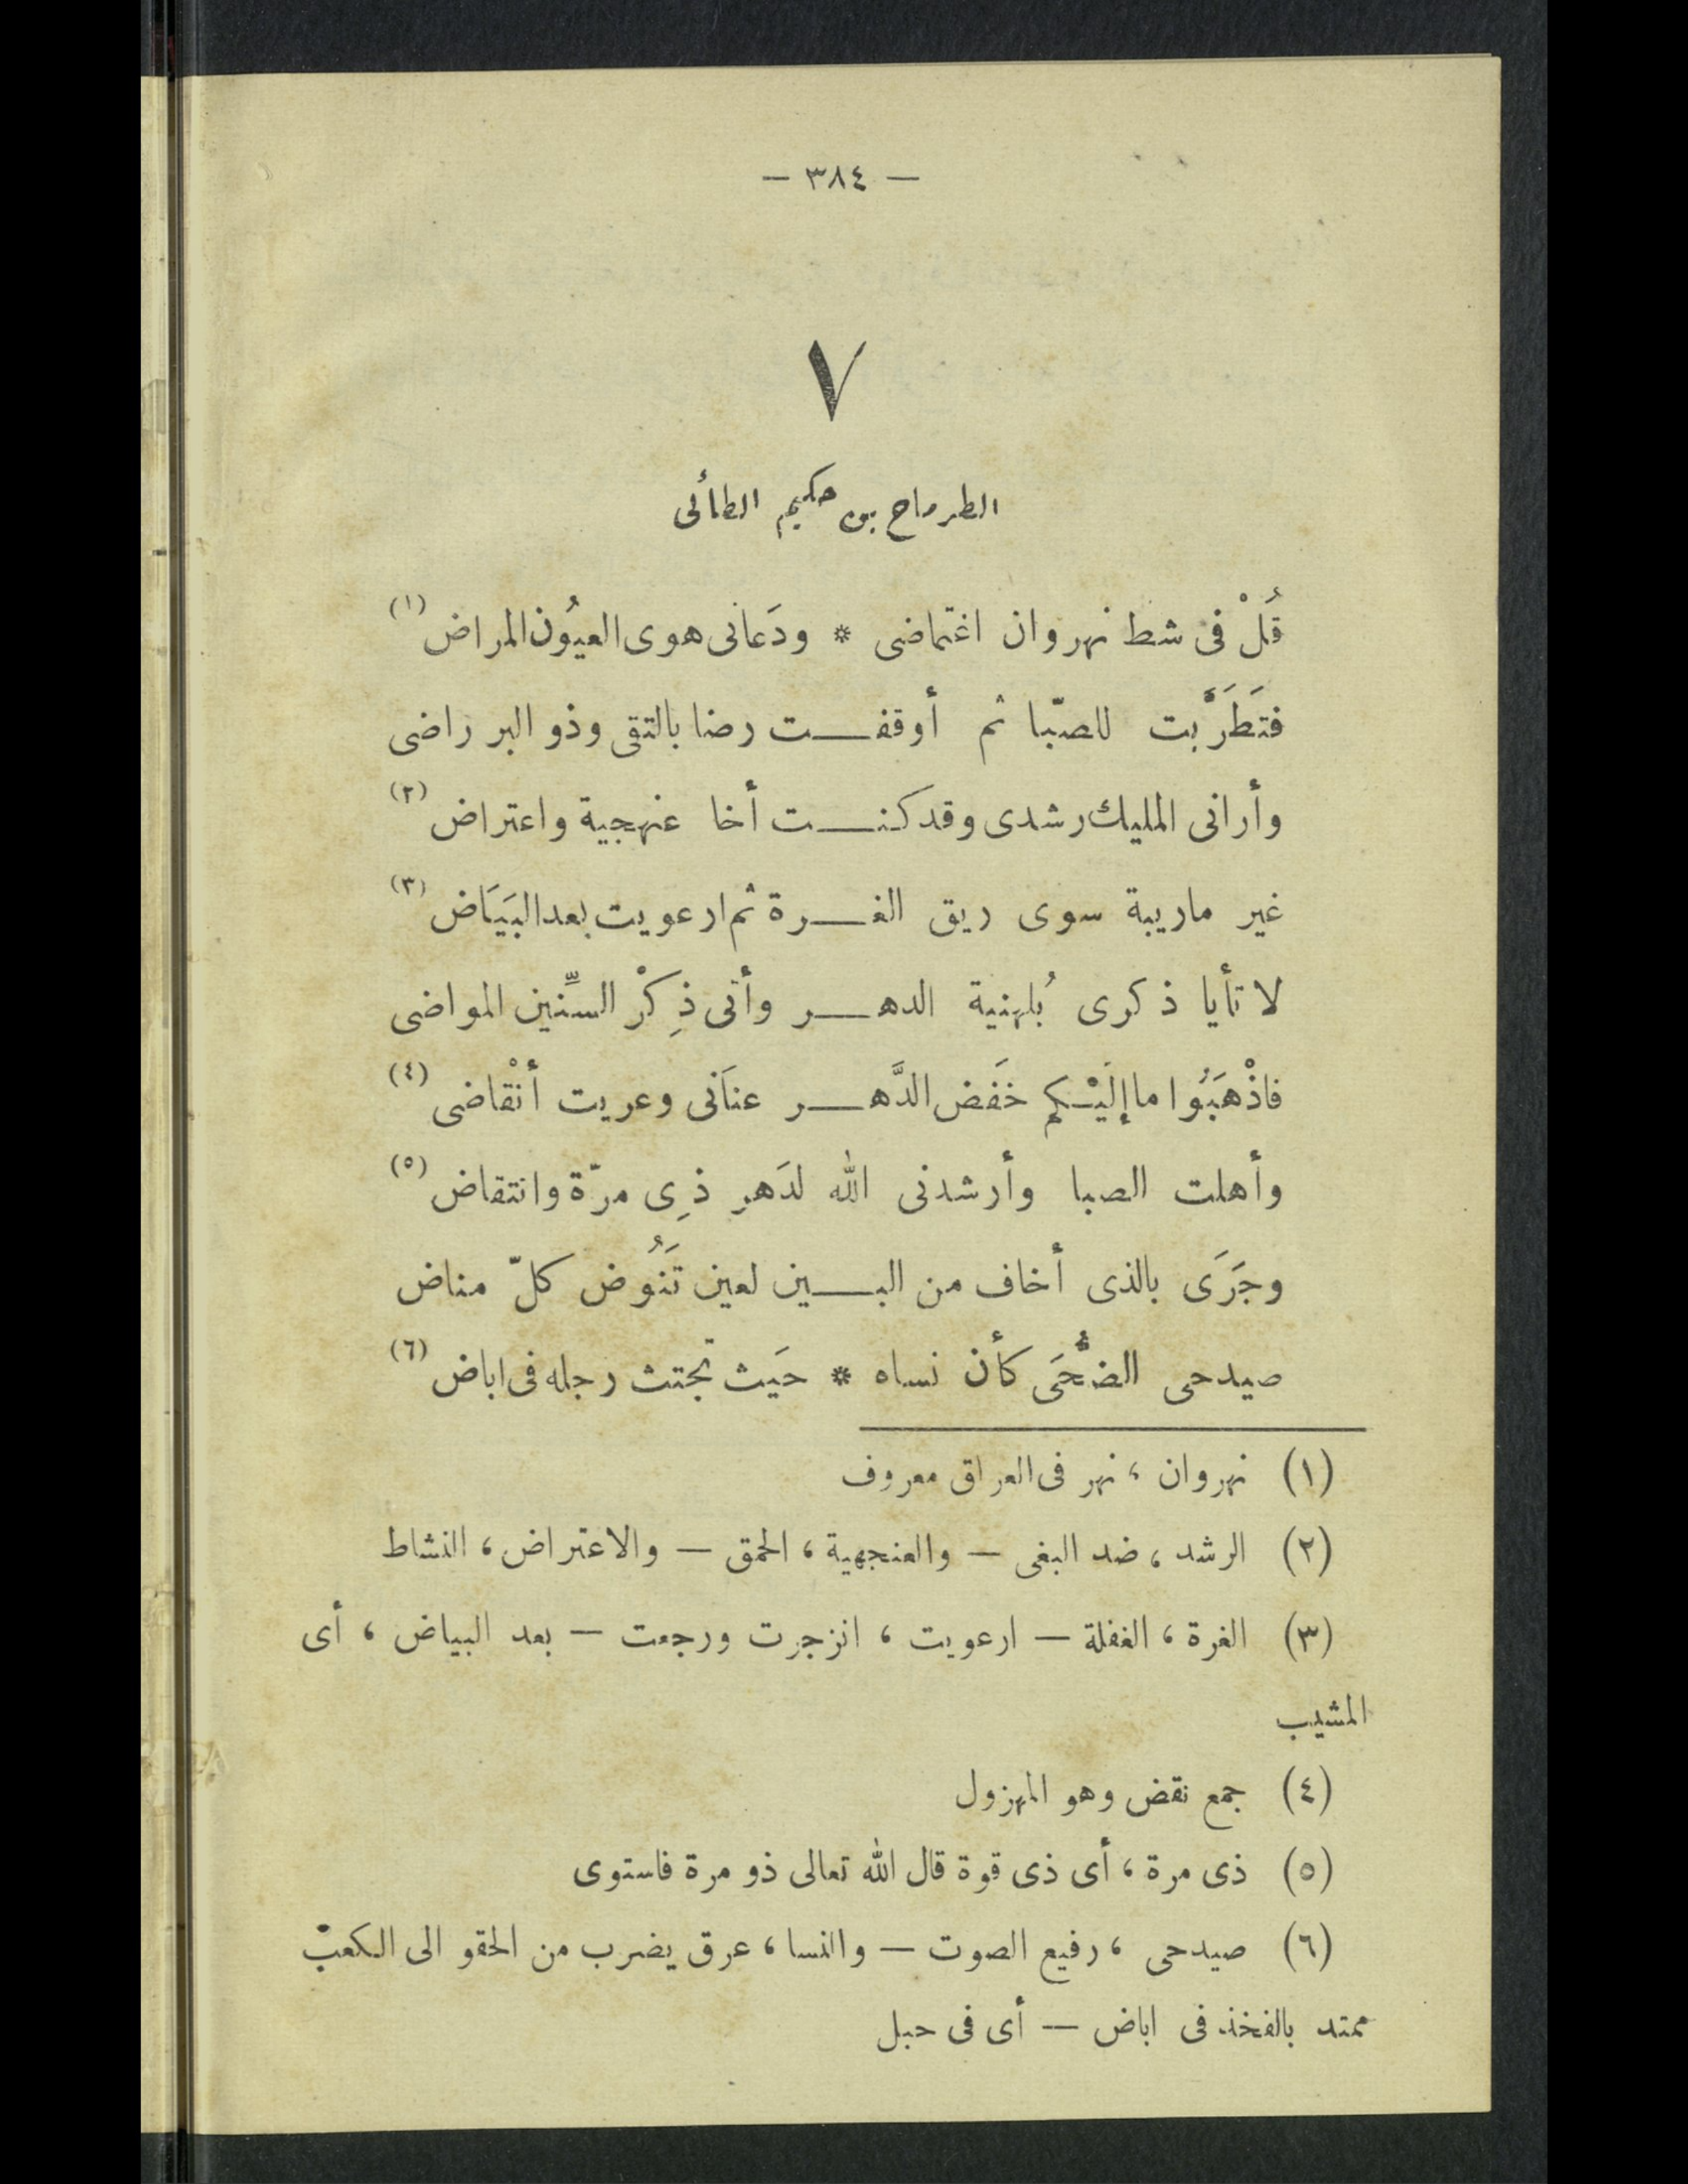 — ٣٨٤ —
٧
الطرماح بن حكيم الطأئى
قُلْ فى شط نهروان اغتماضى * ودَعانى هوى العيُون المراض (١)
فتَطَرَّبت للصبّا ثم أوقفـــت رضا بالتقى وذو البر راضى
وأرانى المليك رشدى وقد كنـــت أخا عنهجية واعتراض (٢)
غير ماريبة سوى ريق الغـــرة ثم ارعويت بعد البَيَاض (٣)
لا تأيا ذكرى بُلهنية الدهـــر وأنى ذِكْر السِّنين المواضى
فاذْهَبُوا ما إلَيْـكم خَفَض الدَّهـــر عنَانى وعريت أنْقاضى (٤)
وأهلت الصبا وأرشدنى الله لدَهرِ ذِى مرّة وانتقاض (٥)
وجَرَى بالذى أخاف من البـــين لعين تَنُوض كلّ مناض
صيدحى الضُّحَى كأن نساه * حيَث تجتث رجله فى اباض (٦)
(١) نهروان ، نهر فى العراق معروف
(٢) الرشد ، ضد البغى — والعنجهية ، الحمق — والاعتراض ، النشاط
(٣) الغرة ، الغفلة — ارعويت ، انزجرت ورجعت — بعد البياض ، أى
المشيب
(٤) جمع نقض وهو المهزول
(٥) ذى مرة ، أى ذى قوة قال الله تعالى ذو مرة فاستوى
(٦) صيدحى ، رفيع الصوت — والنسا ، عرق يضرب من الحقو الى الكعب
ممتد بالفخذ فى اباض — أى فى حبل